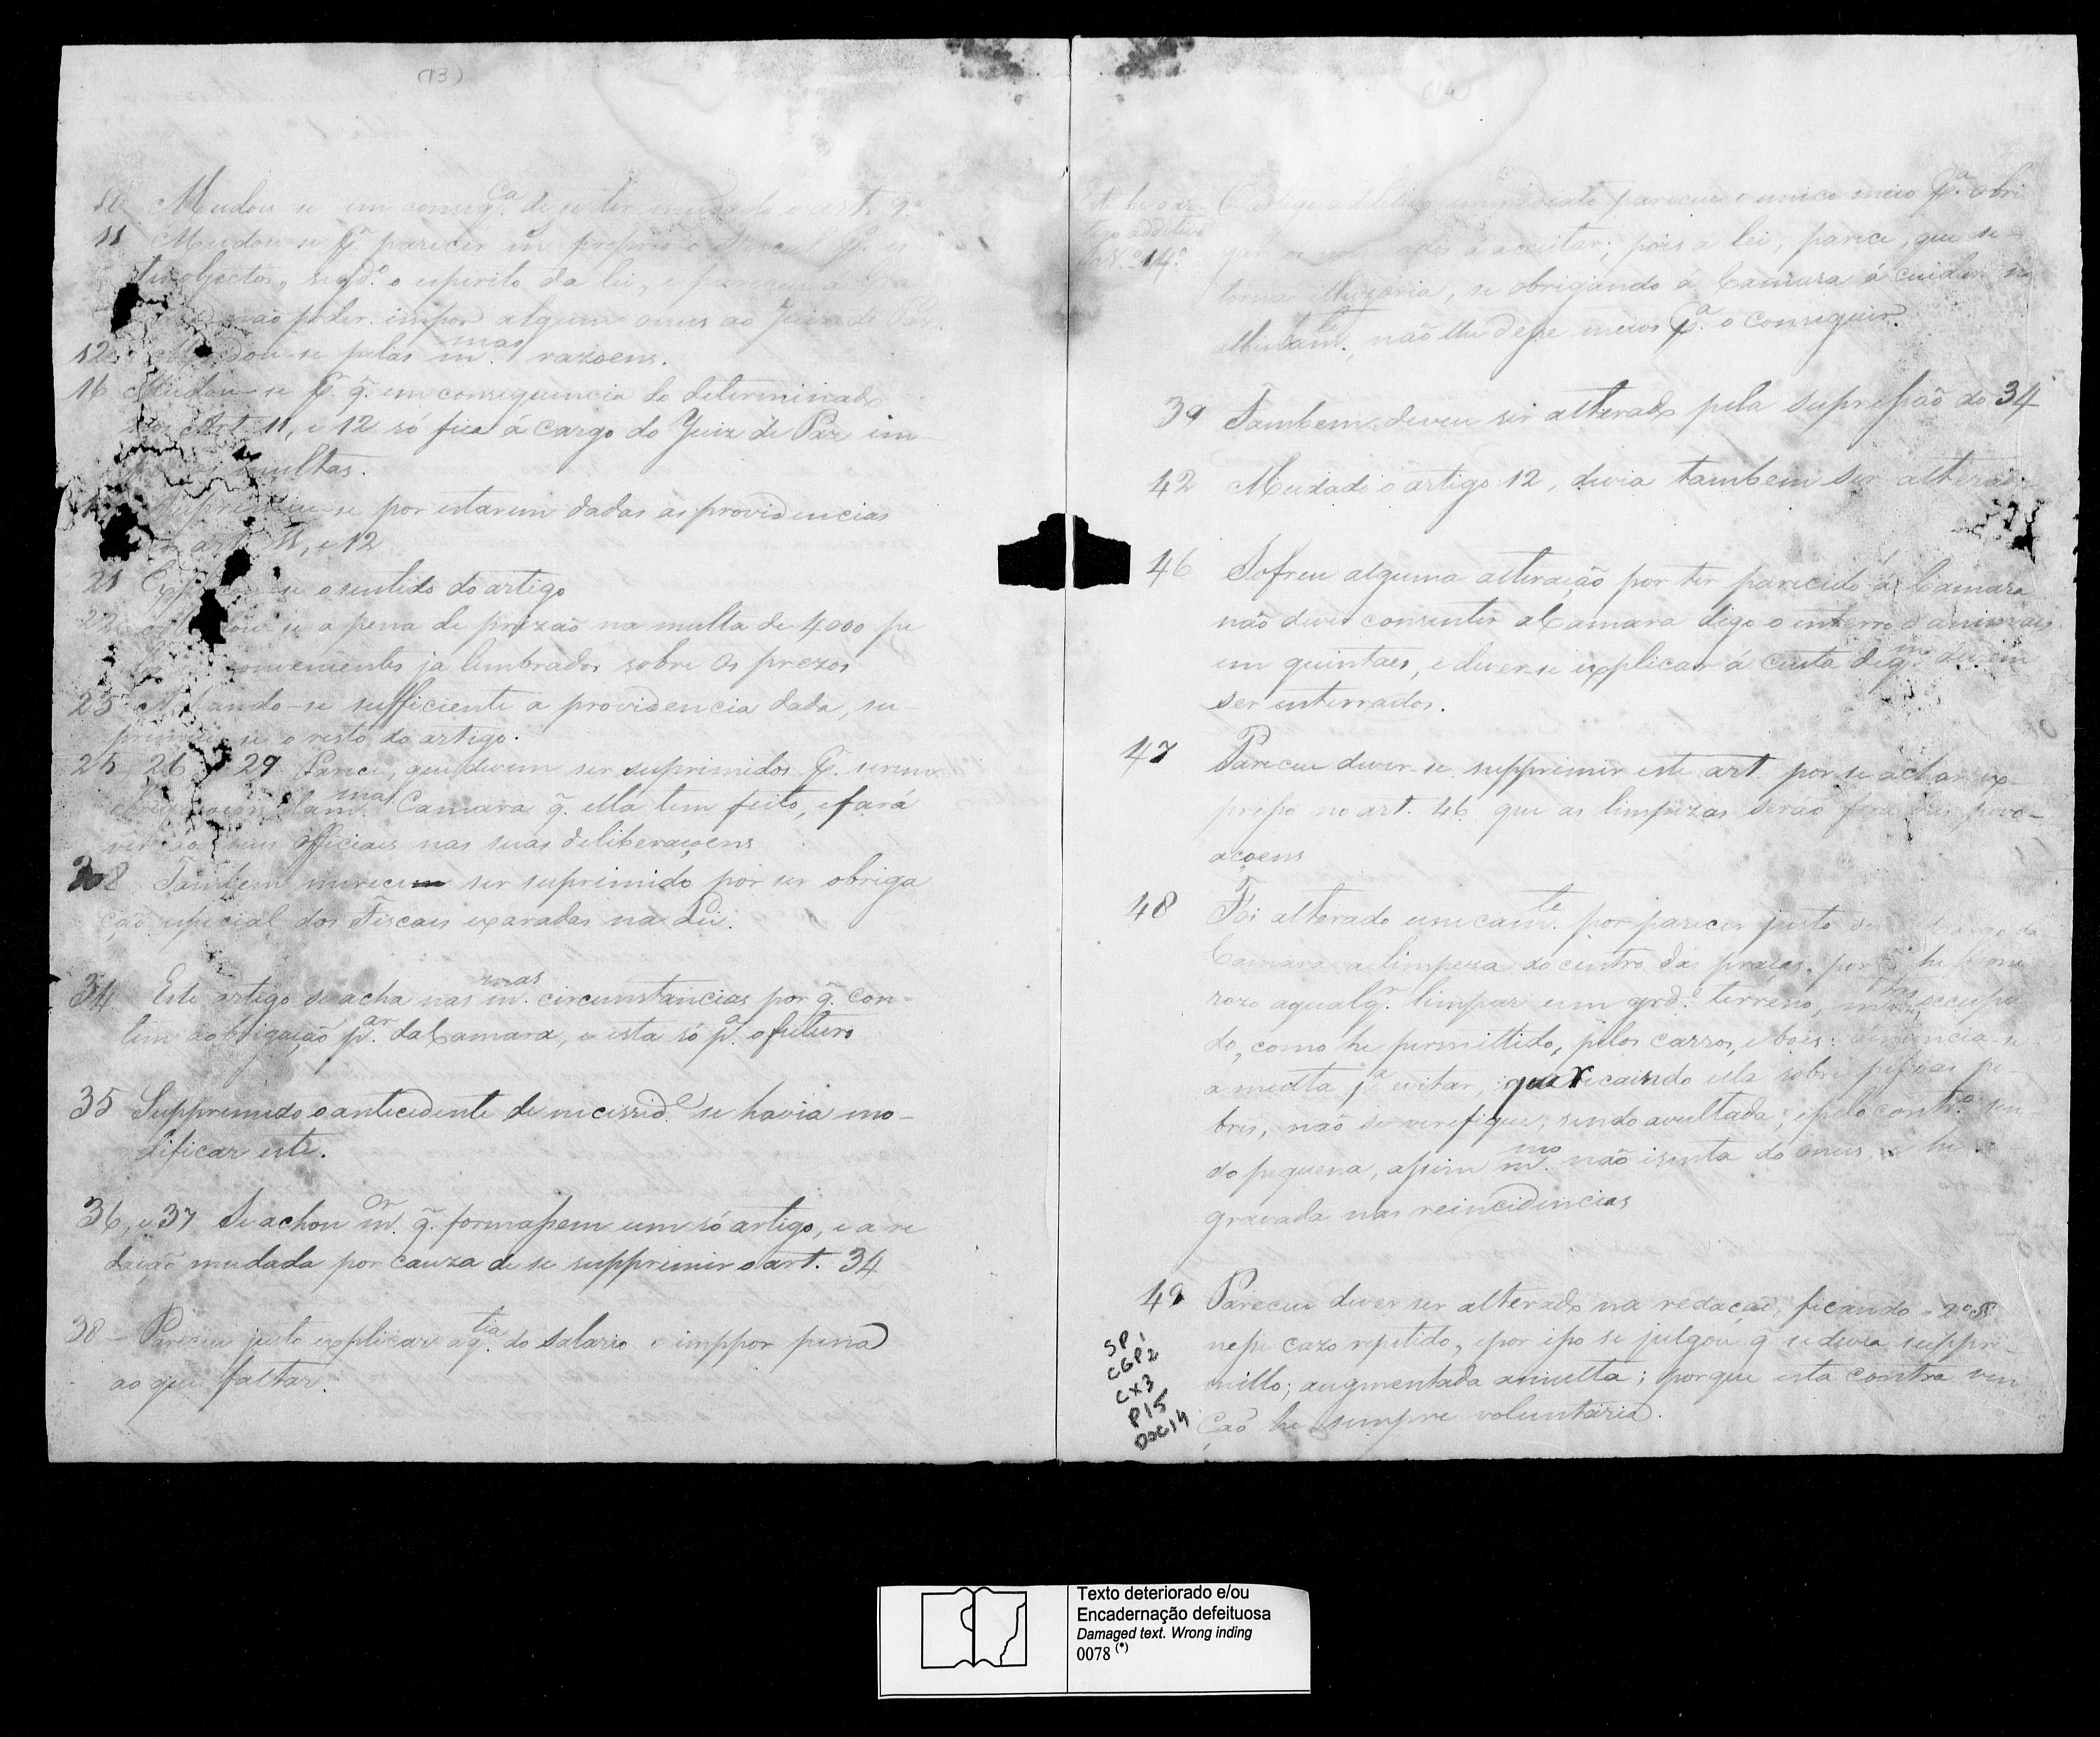 (13)
10 Mudou-se em conseq.ca de se ter mudado o art. 9.o
11 Mudou-se p.r parecer m. proprio o Fiscal p.a es
tes objectos, segd.o o espirito da lei, e pareceu a
não poder impor algum onus ao Juiz de Paz.
12 Mudou-se pelas m.mas razoens.
16 Mudou-se p.r q̃. em consequencia do determinado
nos Art. 11, e 12 só fica á cargo do Juiz de Paz im
por as multas.
Suprimiu-se por estarem dadas as providencias
nos art. 11, e 12
21 Explicou-se o sentido do artigo
22 se a pena de prizão na multa de 4000 pe
los inconvenientes ja lembrados sobre os prezos
23 Achando-se sufficiente a providencia dada, su-
primiu-se o resto do artigo.
25, 26, e 29 Parece, que devem ser suprimidos p.r serem
obrigaçoens da m.ma Camara q̃. ella tem feito, e fará
ver aos seus officiaes nas suas deliberaçoens
28 Tambem merece ser suprimido por ser obriga
ção especial dos Fiscaes exaradas na Lei.
34 Este artigo se acha nas m.mas circunstancias por q̃. con-
tem a obrigação p.ar da Camara, e esta só p.a o futuro
35 Supprimido o antecedente de necessid.e se havia mo-
dificar este.
36, e 37 Se achou m.or q̃. formassem um só artigo, e a re
dação mudada por cauza de se supprimir o art. 34
38 - Pareceu justo explicar a q.tia do salario e imppor pena
ao que faltar.
Ao ar
tigo additivo
N.o 14.o
O artigo additivo pareceu o unico meio p.a obri
gar os nomeados a aceitar; pois a lei, parece, que se
torna illuzoria, se obrigando á Camara á cuidar no
não lhe desse meios p.a o conseguir.
39 Tambem deveu ser alterado pela supressão do 34
42 Mudado o artigo 12, devia tambem ser alterado
46 Sofreu alguma alteração por ter parecido á Camara
não dever consentir a Camara digo o enterro d'animaes
em quintaes, e dever-se explicar á custa de q.m devem
ser enterrados.
47 Pareceu dever-se supprimir este art. por se achar ex-
presso no art. 46 que as limpezas serão fora das povo-
açoens
48 Foi alterado unicam.te por parecer justo ser cargo da
Camara a limpeza do centro das praças, por q̃ he
rozo a qualq.r limpar um grd.e terreno, occupa
do, como he permittido, pelos carros, e bois:
a multa p.a evitar, que recaindo ella sobre pessoas po
bres, não se verefique, sendo avultada; e pelo contr.o sen
do pequena, assim m.mo não isenta do onus, e he
gravada nas reincidencias
49 Pareceu dever ser alterado na redação, ficando o 2.o §
nesse cazo repetido, e por isso se julgou q̃ se devia suppri-
millo; augmentada a multa; porque esta contra ven
ção he sempre voluntaria.
SP1
CGP2
CX3
P15
DOC14
Texto deteriorado e/ou
Encadernação defeituosa
Damaged text. Wrong inding
0078 (*)